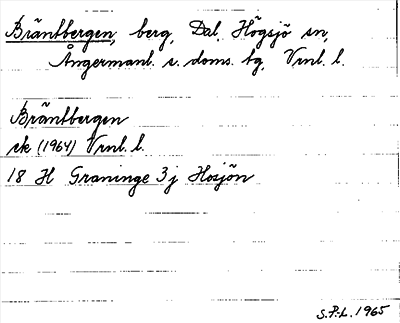 Bräntbergen, berg, Dal, Högsjö sn,
Ångermanl. s. doms. tg, Vnl. l.
Bräntbergen
ek (1964) Vnl. l.
18 H Graninge 3j Hosjön
S.P.L. 1965